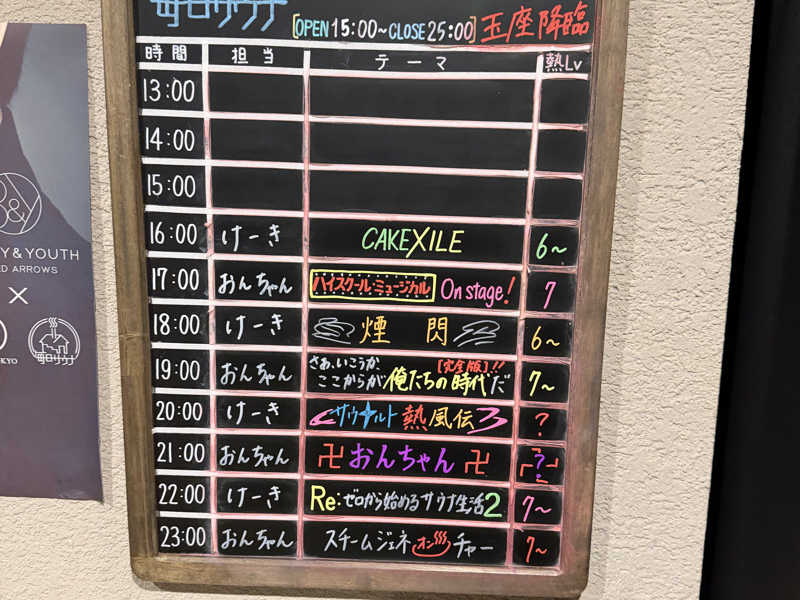 毎日サウナ
[OPEN 15:00~CLOSE 25:00] 玉座降臨
時間 担当 テーマ 熱Lv
13:00
14:00
15:00
16:00 けーき CAKEXILE 6~
17:00 おんちゃん ハイスクール・ミュージカル On stage! 7
18:00 けーき 煙 閃 6~
19:00 おんちゃん さあ、いこうか ここからが 俺たちの時代だ [完全版]!! 7~
20:00 けーき サウナルト 熱風伝3 ?
21:00 おんちゃん 卍 おんちゃん 卍 ?
22:00 けーき Re:ゼロから始めるサウナ生活2 7~
23:00 おんちゃん スチームジェネオンチャー 7~
Y & YOUTH
ED ARROWS
×
KYO
毎日サウナ